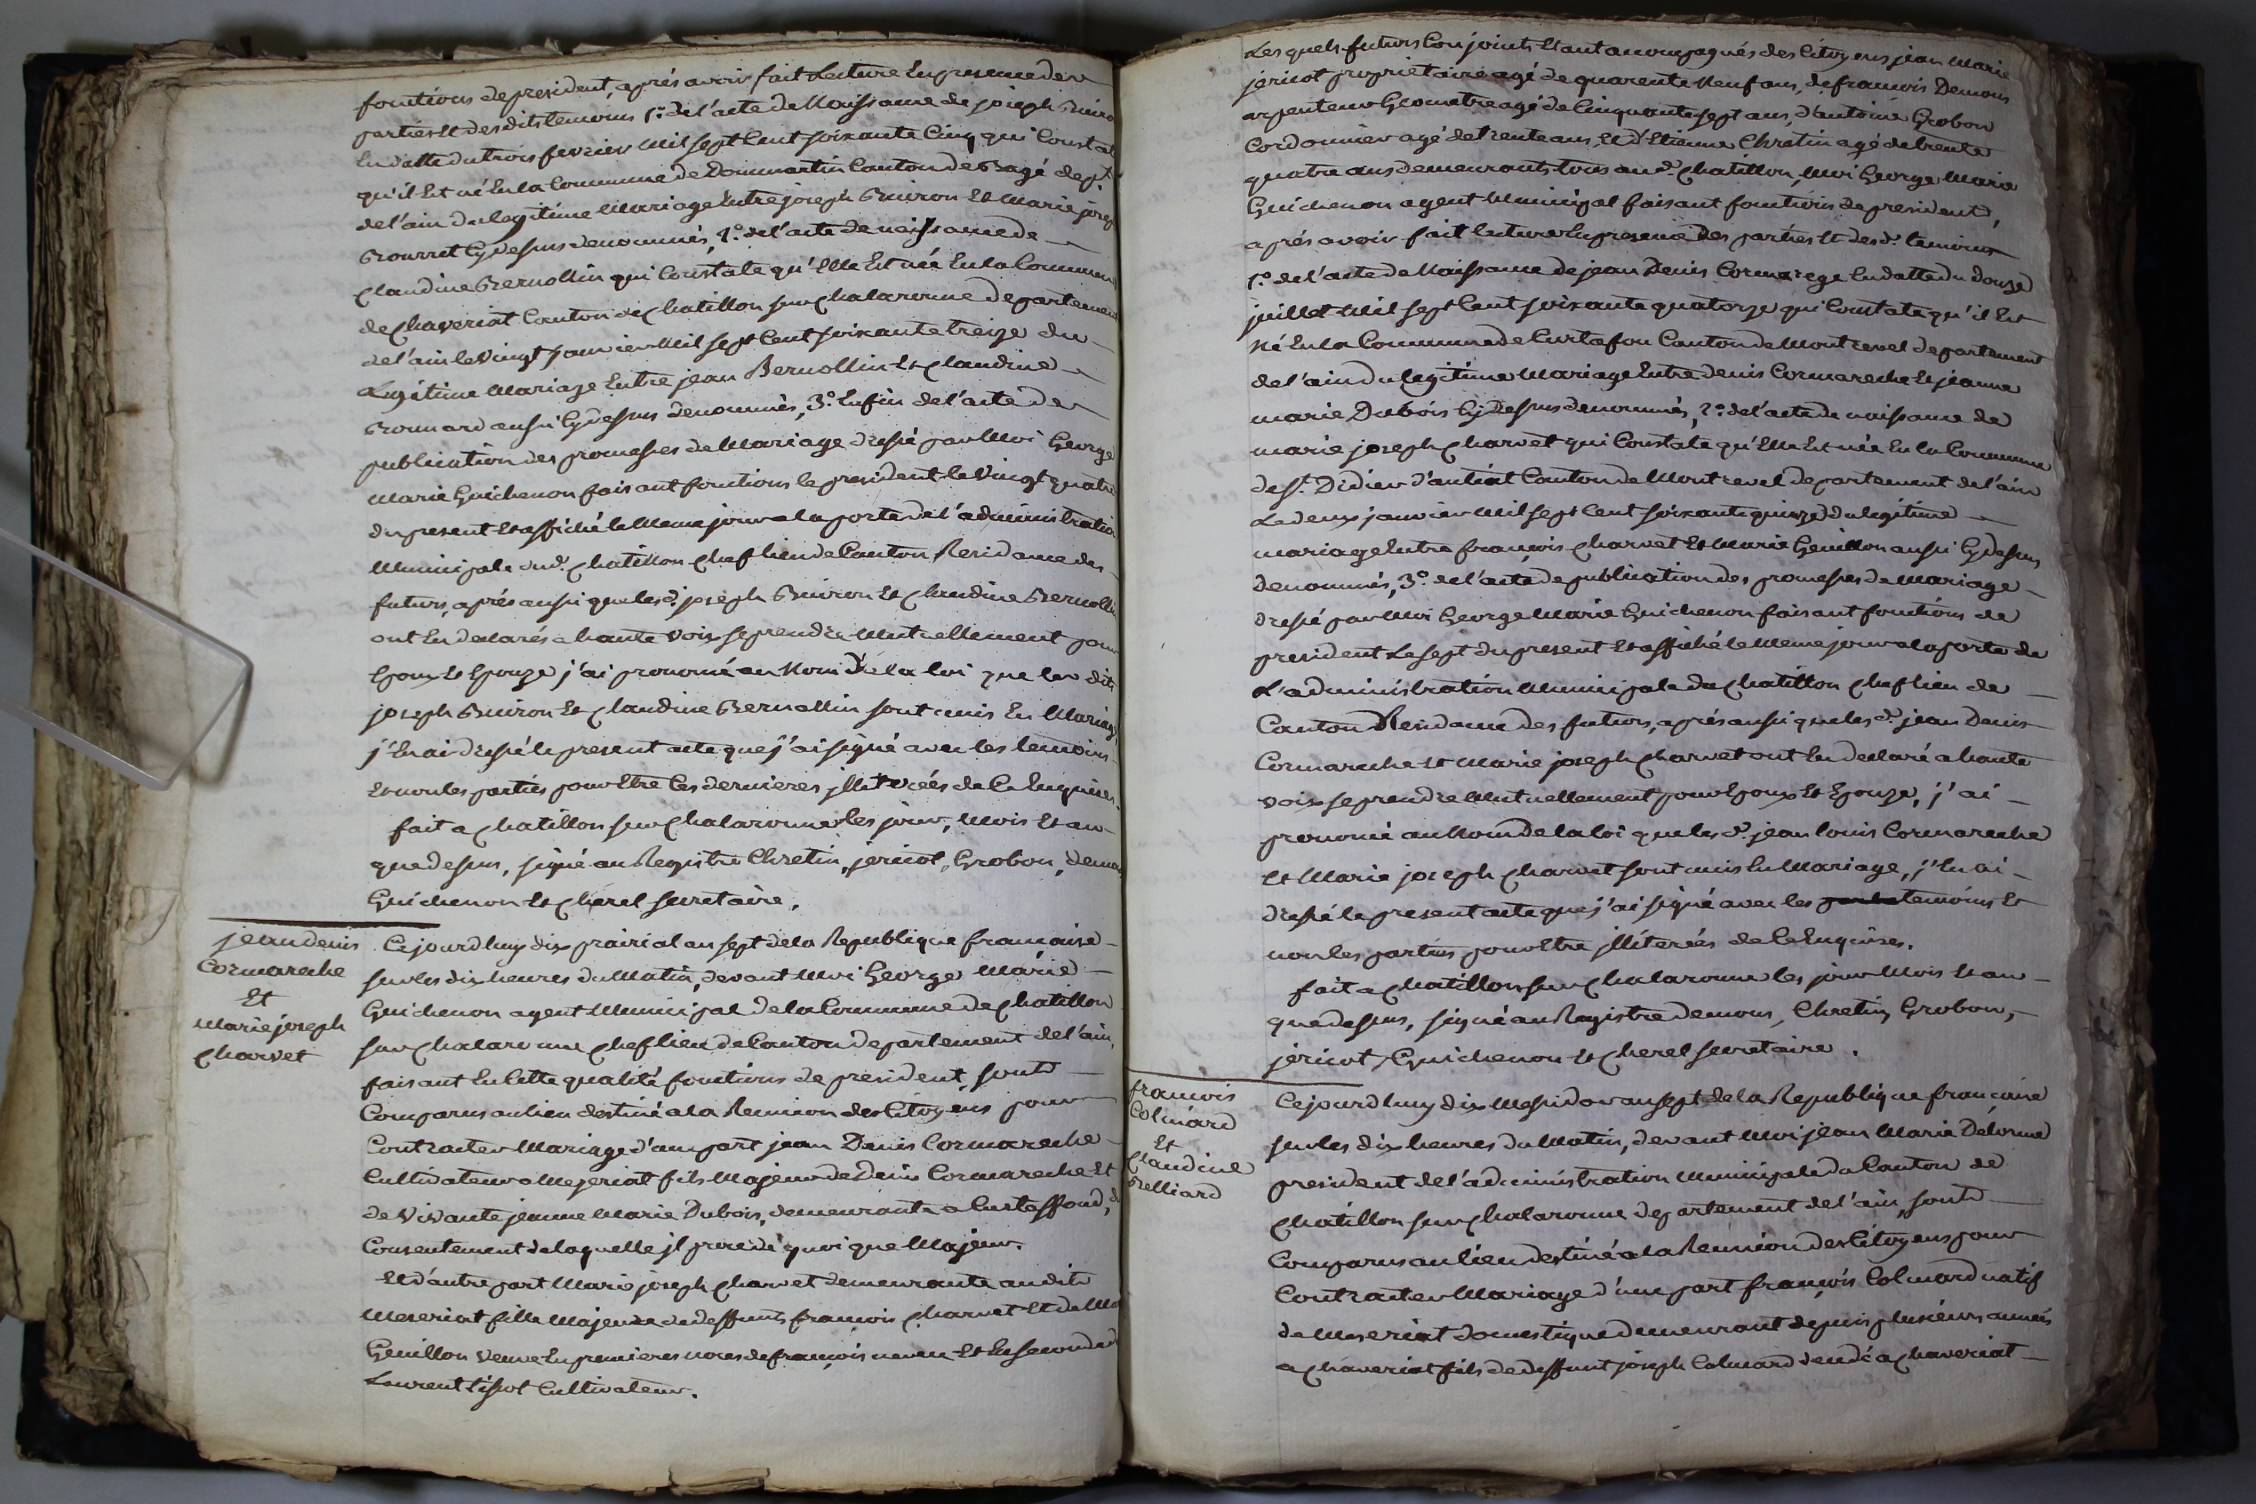 fonctions de president, après avoir fait Lecture En presence des
parties Et des dits temoins 1.° de l'acte de Naissance de joseph Buiron
En datte du trois fevrier Mil sept Cent soixante Cinq qui Constate
qu'il Est né En la Commune de Dommartin Canton de Bagé dept.
de l'ain du legitime Mariage Entre joseph Buiron Et Marie joseph
Bourret Cy dessus denommés, 2.° de l'acte de naissance de
Claudine Bernollin qui Constate qu'Elle Est née En la Commune
de Chaveriat Canton de Chatillon sur Chalaronne departement
de l'ain le Vingt janvier Mil sept Cent soixante treize du
Legitime Mariage Entre jean Bernollin Et Claudine
Bonnard aussi Cy dessus denommés, 3.° Enfin de l'acte de
publication des promesses de Mariage dressé par Moi George
Marie Guichenon faisant fonctions de president le Vingt quatre
du present Et affiché le Meme jour a la porte de l'administration
Municipale dud. Chatillon Chef lieu de Canton Residance des
futurs, après aussi que lesd. joseph Buiron Et Claudine Bernollin
ont Eu declarés a haute Voix se prendre Mutuellement pour
Epoux Et Epouze j'ai prononcé au Nom de la loi que les dits
joseph Buiron Et Claudine Bernollin sont unis En Mariage,
j'En ai dressé le present acte que j'ai signé avec les temoins
Et non les parties pour Etre Ces dernieres jllitérées de Ce Enquises.
fait a Chatillon sur Chalaronne les jour, Mois Et an
que dessus, signé au Registre Chretin, jericot, Grobon, demons
Guichenon Et Cherel secretaire.
jean denis
Cormareche
Et
Marie joseph
Charvet
Cejourd'huy dix prairial an sept de la Republique française
sur les dix heures du Matin, devant Moi George Marie
Guichenon agent Municipal de la Commune de Chatillon
sur Chalaronne Chef lieu de Canton departement de l'ain,
faisant En Cette qualité fonctions de president, sont
Comparus au lieu destiné a la Reunion des Citoyens pour
Contracter Mariage d'une part jean Denis Cormareche
Cultivateur a Mezeriat fils Majeur de Denis Cormareche Et
de Vivante jeanne Marie Dubois, demeurante a Curtaffond, du
Consentement de laquelle jl procede quoi que Majeur.
Et d'autre part Marie joseph Charvet demeurante au dit
Meseriat fille Majeure de deffunts françois Charvet Et de Marie
Genillon Veuve En premieres noces de françois neveu Et En secondes de
Laurent tissot Cultivateur.
Les quels futurs Conjoints Etant accompagnés des Citoyens jean Marie
jericot proprietaire agé de quarente Neuf ans, de francois Demons
arpenteur Geometre agé de Cinquante sept ans, d'antoine Grobon
Cordonnier agé de trente ans, Et d'Etienne Chretin agé de trente
quatre ans demeurants tous aud. Chatillon, Moi George Marie
Guichenon agent Municipal faisant fonctions de president,
après avoir fait lecture En presence des parties Et desd. temoins
1.° de l'acte de Naissance de jean Denis Cormarege En datte du douze
juillet Mil sept Cent soixante quatorze qui Constate qu'il Est
né En la Commune de Curtafon Canton de Montrevel departement
de l'ain du legitime Mariage Entre denis Cormareche Et jeanne
marie Dubois Cy dessus denommés, 2.° de l'acte de naissance de
marie joseph Charvet qui Constate qu'Elle Est née En la Commune
de St. Didier d'autiat Canton de Montrevel departement de l'ain
Le deux janvier Mil sept Cent soixante quinze du legitime
mariage Entre françois Charvet Et Marie Genillon aussi Cy dessus
denommés, 3.° de l'acte de publication des promesses de Mariage
dressé par Moi George Marie Guichenon faisant fonctions de
president Le sept du present Et affiché le Meme jour a la porte de
L'administration Municipale de Chatillon Chef lieu de
Canton Residance des futurs, après aussi que les d. jean Denis
Cormareche Et Marie joseph Charvet ont Eu declaré a haute
voix se prendre Mutuellement pour Epoux Et Epouze, j'ai
prononcé au Nom de la loi que les d. jean louis Cormareche
Et Marie joseph Charvet sont unis En Mariage, j'En ai
dressé le present acte que j'ai signé avec les temoins Et
non les parties pour Etre jllitérées de Ce Enquises.
fait a Chatillon sur Chalaronne les jour Mois Et an
que dessus, signé au Registre demons, Chretin, Grobon,
jericot, Guichenon Et Cherel secretaire.
francois
Colmard
Et
Claudine
Belliard
Cejourd'huy dix Messidor an sept de la Republique francaise
sur les dix heures du Matin, devant Moi jean Marie Delorme
president de l'administration Municipale du Canton de
Chatillon sur Chalaronne departement de l'ain, sont
Comparus au lieu destiné a la Reunion des Citoyens pour
Contracter Mariage d'une part françois Colmard natif
de Meseriat domestique demeurant depuis plusieurs années
a Chaveriat fils de deffunt joseph Colmard decedé a Chaveriat